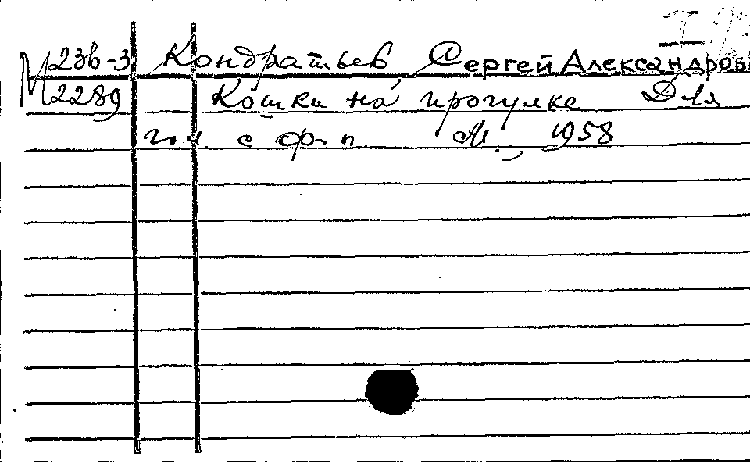 М23в-3 Кондратьев, Сергей Александров
2289 Кошки на прогулке Для
гол. с ф-п М., 1958